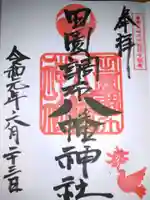 奉拝
田園調布八幡神社
令和元年六月二十三日